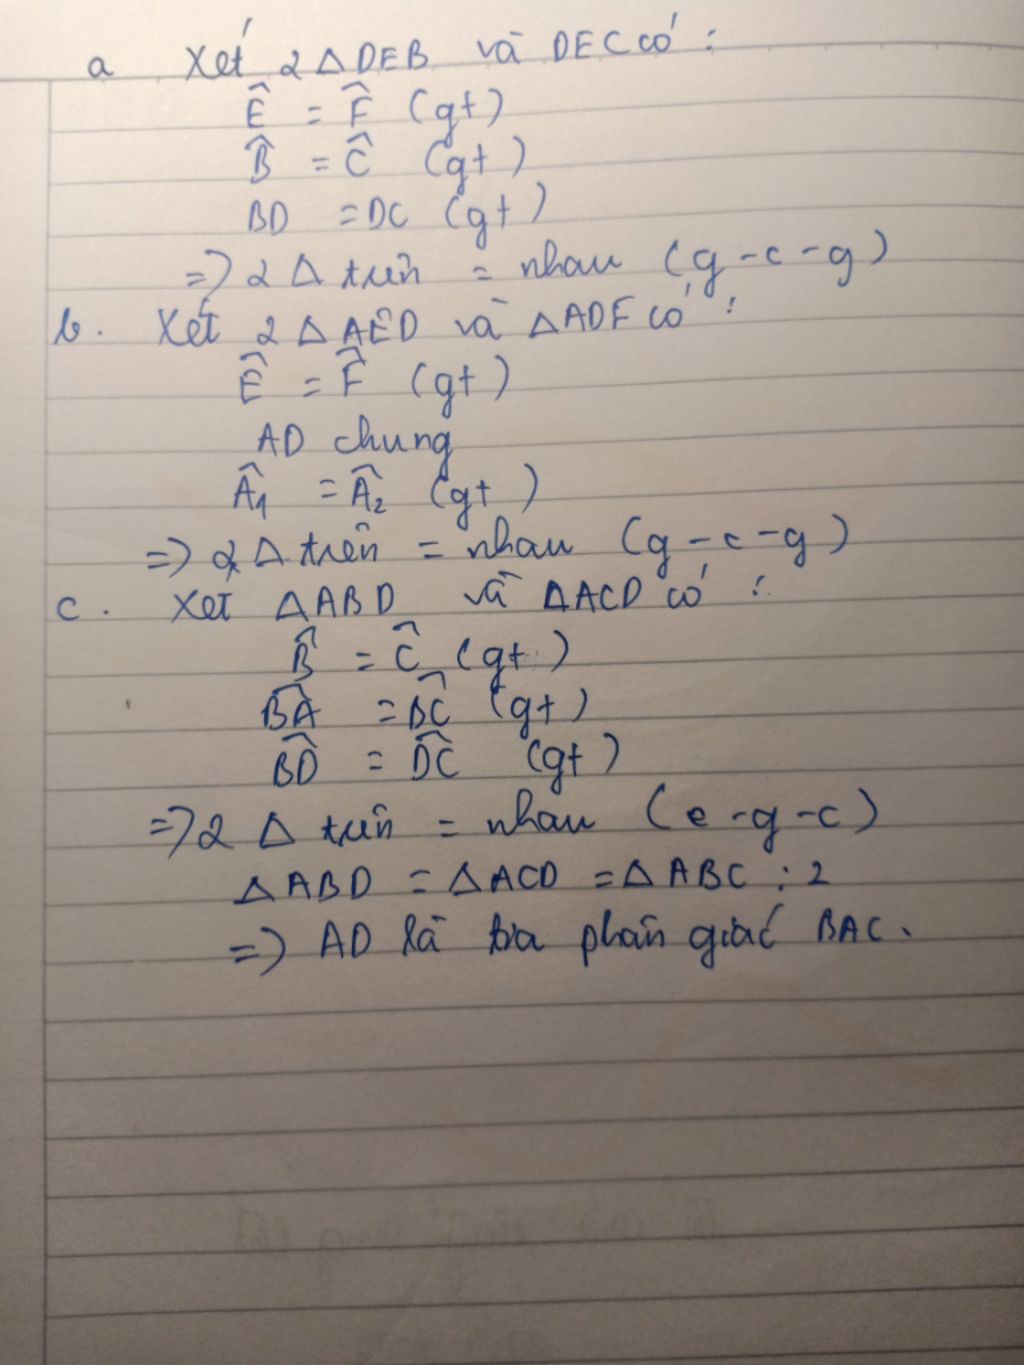 a Xét 2 Δ DEB và DEC có :
Ê = F̂ (gt)
B̂ = Ĉ (gt)
BD = DC (gt)
=> 2 Δ trên = nhau (g - c - g)
b. Xét 2 Δ AED và ΔADF có :
Ê = F̂ (gt)
AD chung
Â1 = Â2 (gt)
=> 2 Δ trên = nhau (g - c - g)
c. Xét ΔABD và ΔACD có :
B̂ = Ĉ (gt)
BÂ = BĈ (gt)
BD̂ = DĈ (gt)
=> 2 Δ trên = nhau (c - g - c)
ΔABD = ΔACD = ΔABC : 2
=> AD là tia phân giác BAC.